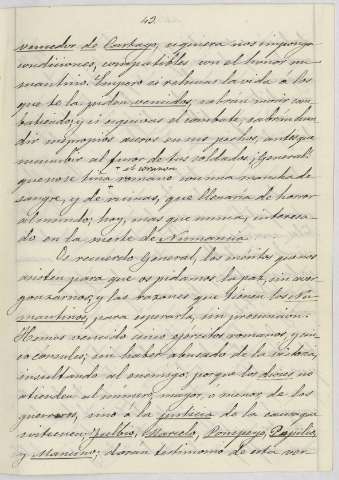 43
vencedor de Cartago, siquiera nos imponga
condiciones, compatibles con el honor nu-
mantino. Empero si rehusas la vida a los
que te la piden vencidos, sabrán morir com-
batiendo; y si esquivas el combate, sabrán hun-
dir sus propios aceros en sus pechos, antes que
sucumbir al furor de tus soldados, ¡General!
que no se tiña el corazón romano con una mancha de
sangre, y de ruinas, que llenaría de horror
al mundo; hoy, mas que nunca, interesa-
do en la suerte de Numancia
Te recuerdo General, los méritos que nos
asisten para que os pidamos la paz, sin aver-
gonzarnos; y las razones que tienen los nu-
mantinos para esperarla, sin presunción:
Hemos vencido cinco ejércitos romanos y cin-
co consules; sin haber abusado de la victoria,
insultando al enemigo; porque los dioses no
atienden al número, mayor, ó menor, de los
guerreros, sino á la justicia de la causa que
sostienen; Fulbio, Marcelo, Pompeyo,
y Mancino; darán testimonio de esta ver-